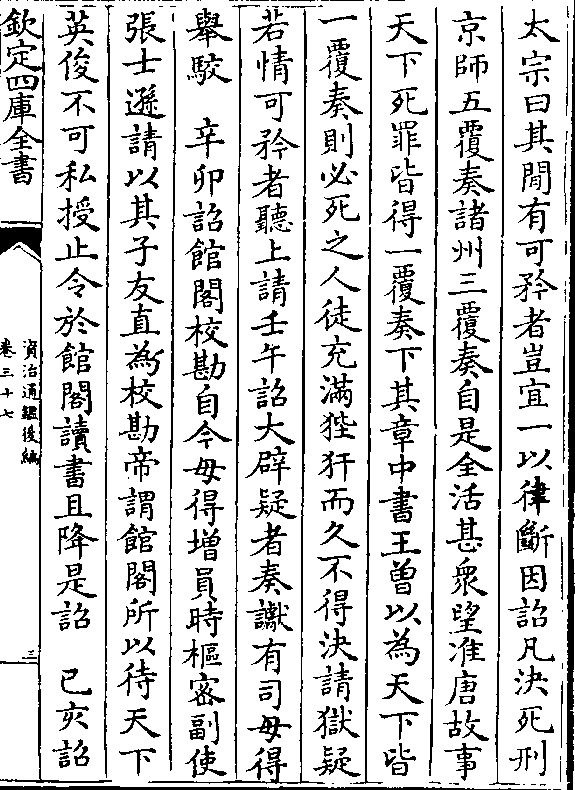 太宗曰其間有可矜者豈宜一以律斷因詔凡決死刑
京師五覆奏諸州三覆奏自是全活甚衆望准唐故事
天下死罪皆得一覆奏下其章中書王曾以為天下皆
一覆奏則必死之人徒充滿狴犴而久不得決請獄疑
若情可矜者聽上請壬午詔大辟疑者奏讞有司毋得
舉駮　辛卯詔館閣校勘自今毋得增員時樞密副使
張士遜請以其子友直為校勘帝謂館閣所以待天下
英俊不可私授止令於館閣讀書且降是詔　己亥詔
欽定四庫全書
資治通鑑後編
卷三十七
三